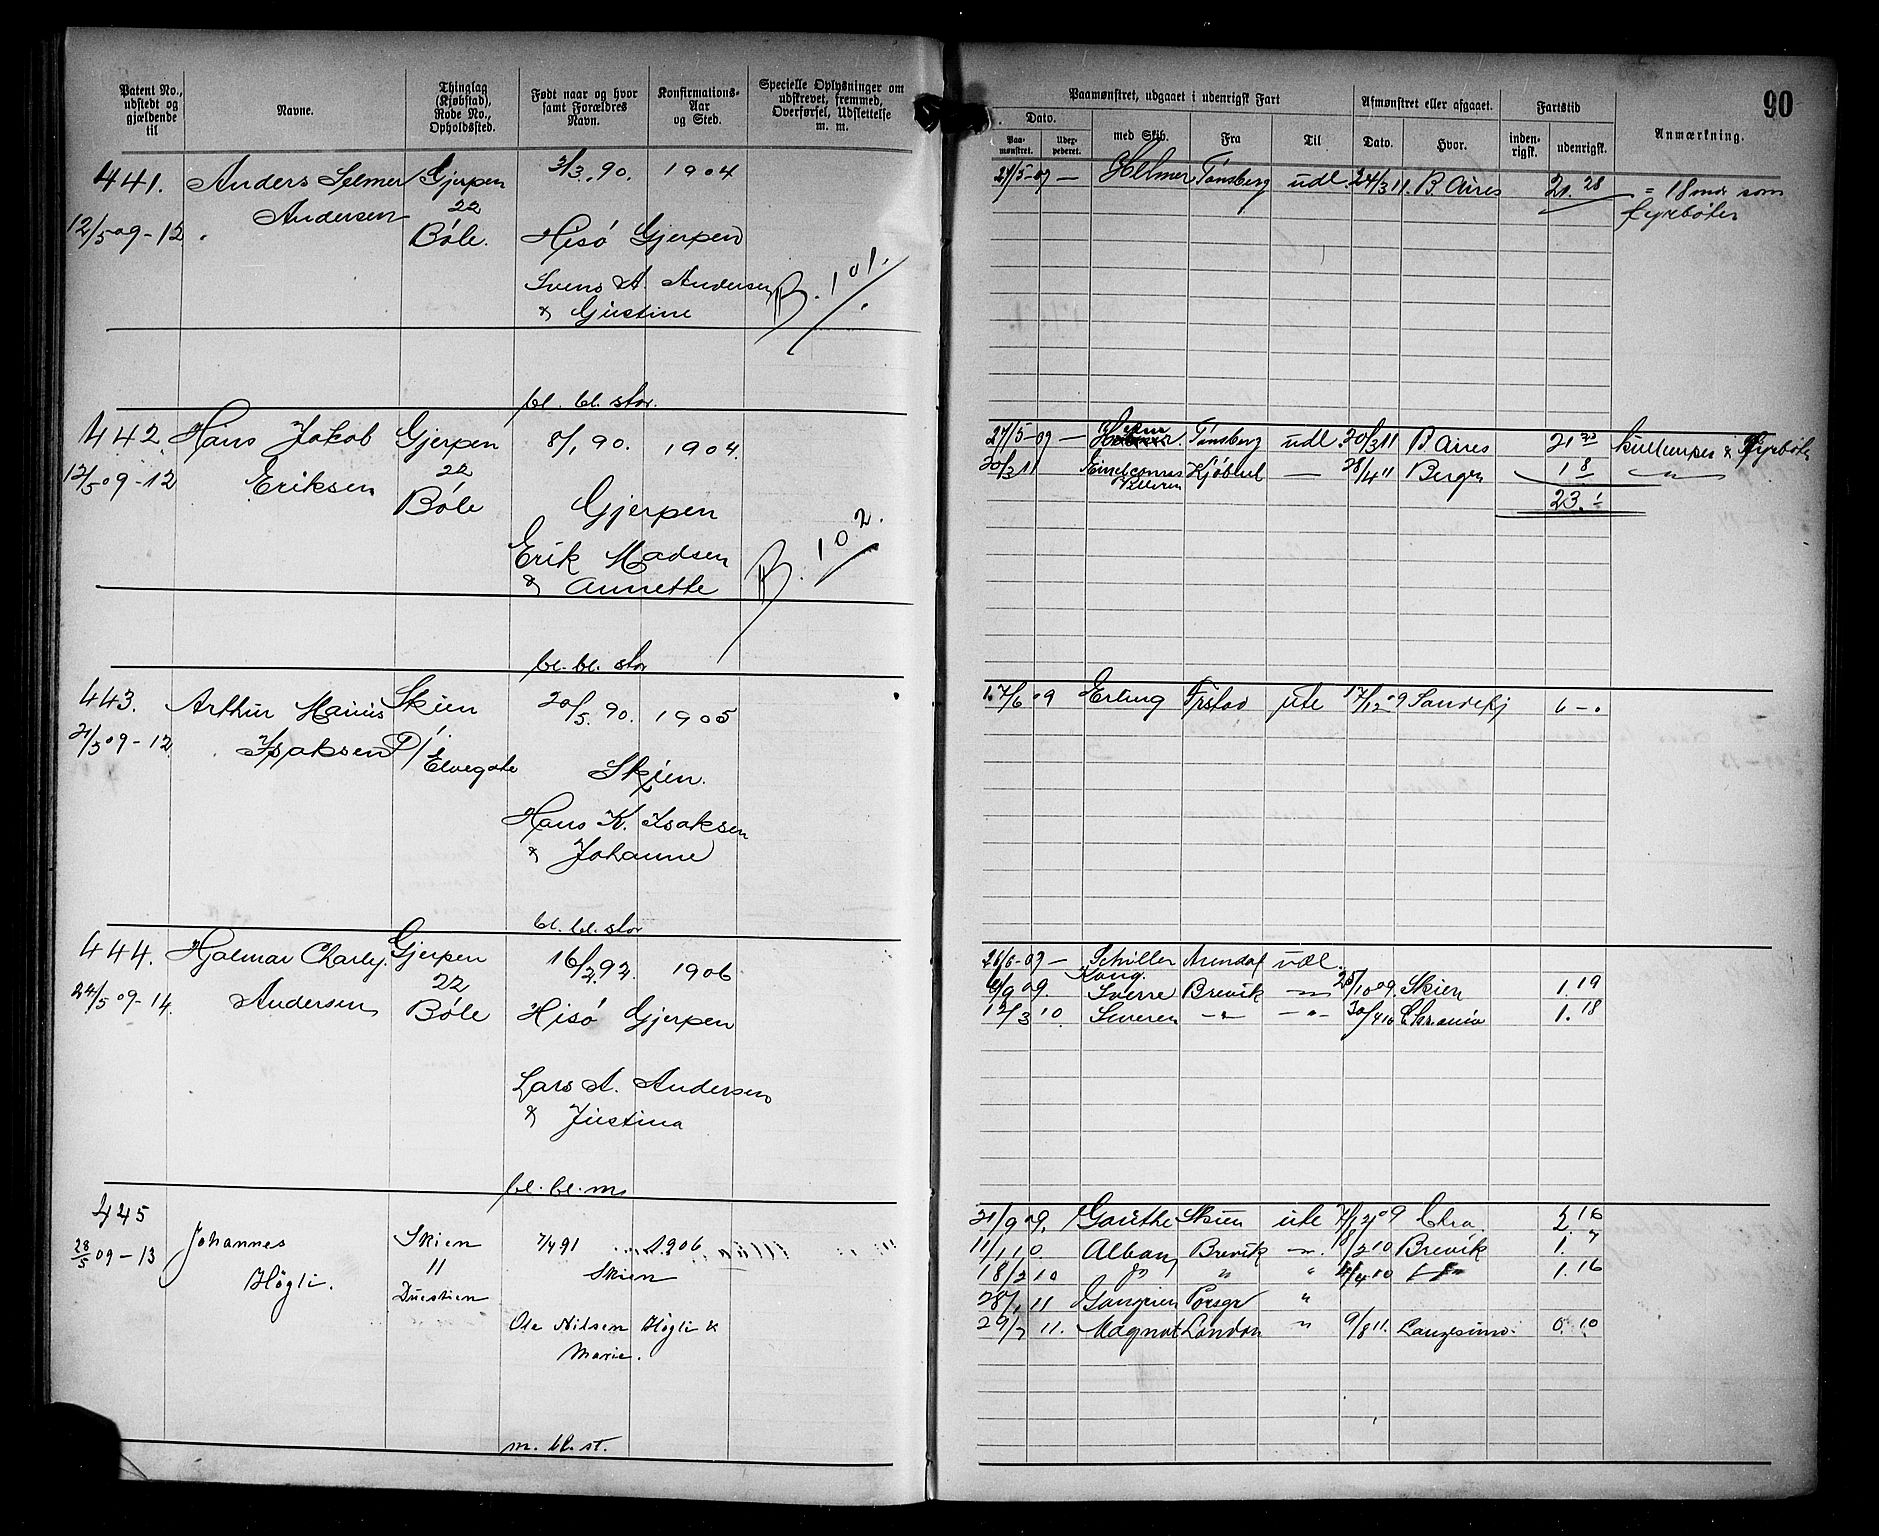 Patent No., udstedt og gjældende til
Navne.
Thinglag (Kjøbstad), Rode No., Opholdssted.
Født naar og hvor samt Forældres Navn.
Konfirmations-Aar og Sted.
Specielle Oplysninger om udskrevet, fremmed, Overførsel, Udslettelse m. m.
441. Anders Selmer Gjerpen 3/3.90. 1904
Andersen 22
12/5 09-12 Bóle. Hisó Gjerpen
Svens A. Andersen
& Gjustine
B. 101.
bl. bl. stor.
442. Hans Jakob Gjerpen 8/1 90. 1904.
12/5 09-12 Eriksen 22
Bóle Gjerpen
Erik Madsen
& Annette
B. 102.
bl. bl. stor
443. Arthur Marius Skien 20/5. 90. 1905
21/5 09-12 Isaksen Elvegate
Skien.
Hans K. Isaksen
& Johanne
bl. bl. stor
444. Hjalmar Charley. Gjerpen 16/2 92. 1906
24/5 09-14. Andersen 22
Bóle Hisó Gjerpen
Lars A. Andersen
& Justina
bl. bl. ms
445
28/5 09-13 Johannes Skien 7/4 91 1906
Høgli. 11 Skien
Duestien
Ole Nilsen Høgli &
Marie.
m. bl. st.
90
Paamønstret, udgaaet i udenrigsk Fart
Afmønstret eller afgaaet.
Fartstid
Anmærkning.
Dato.
Paa-mønstret.
Uder-pederet.
med Skib.
Fra
Til
Dato.
Hvor.
inden-rigsk.
udenrigsk.
27/5-09 — Helmer Tónsberg udl. 24/3 11. B Aires 21. 28 = 18 mdr som
fyrbóter
27/5-09 — Tónsberg udl. 20/3 11 B Aires 21 Kullemper & Fyrbóter
20/3 11 Kjóbhl — 28/4 11 Bergen 1 8
23. ÷
17/6 09 Erling Frstad ute 17/12 09 Sandefj 6 - .
26/6-09 — Schiller Arendal udl.
Kong.
6/9 09. Sverre Brevik — 25/10 09. Skien 1. 19
12/3 10. Severen — " — — " — 30/4 10 Chrania 1. 18
21/9 09. Goethe Skien ute 7/12 09 Chra. 2. 16
11/1 10. Alban Brevik — 18/2 10 Brevik 1. 7
18/2 10 Do " " 4/4 10 1. 16
28/1 11 Porsgr "
29/7 11. Magnat London " 9/8 11. Langesund. 0. 10